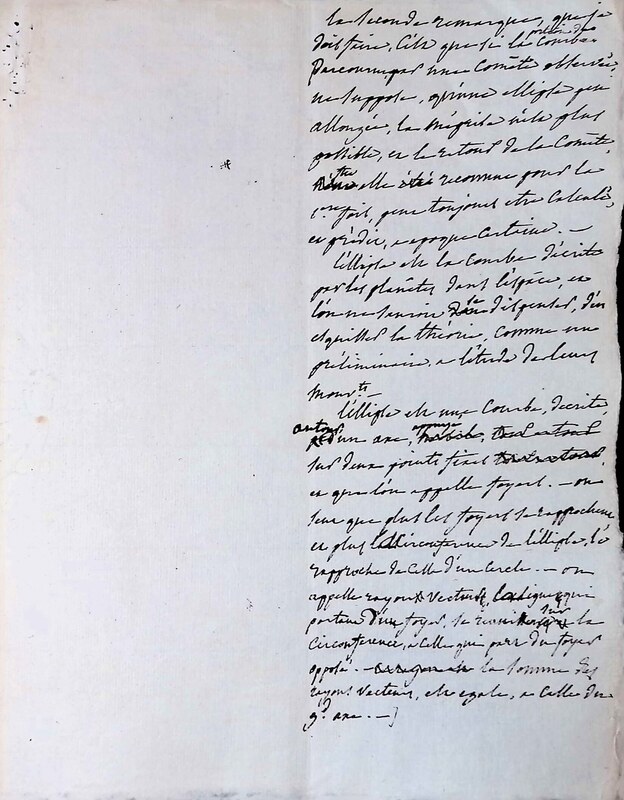 la seconde remarque, que je
dois faire, c'est que si la portion de Courbe
parcourue par une Comète observée,
ne suppose, qu'une ellipse peu
allongée, la méprise n'est plus
possible, et le retour de la Comète,
elle reconnue pour la
1.ere fois, peut toujours etre calculé,
et prédit, a epoque certaine. —
l'éllipse est la courbe décrite
par les planetes dans l'espace, et
l'on ne sauroit se dispenser, d'en
esquisser la théorie, comme une
préliminaire, a l'étude de leurs
mouv.ts —
l'éllipse est une Courbe, decrite,
autour d'un axe, appuyé
sur deux points fixes
et que l'on appelle foyers. — on
sent que plus les foyers se rapprochent
et plus la Circonference de l'éllipse, se
rapproche de celle d'un Cercle. — on
appelle rayons vecteurs, les lignes qui
partant d'un foyer, se reunissent sur la
Circonférence, a celles qui part du foyer
opposé. — la somme des
rayons vecteurs, est egale, a celle du
g.d axe. —]